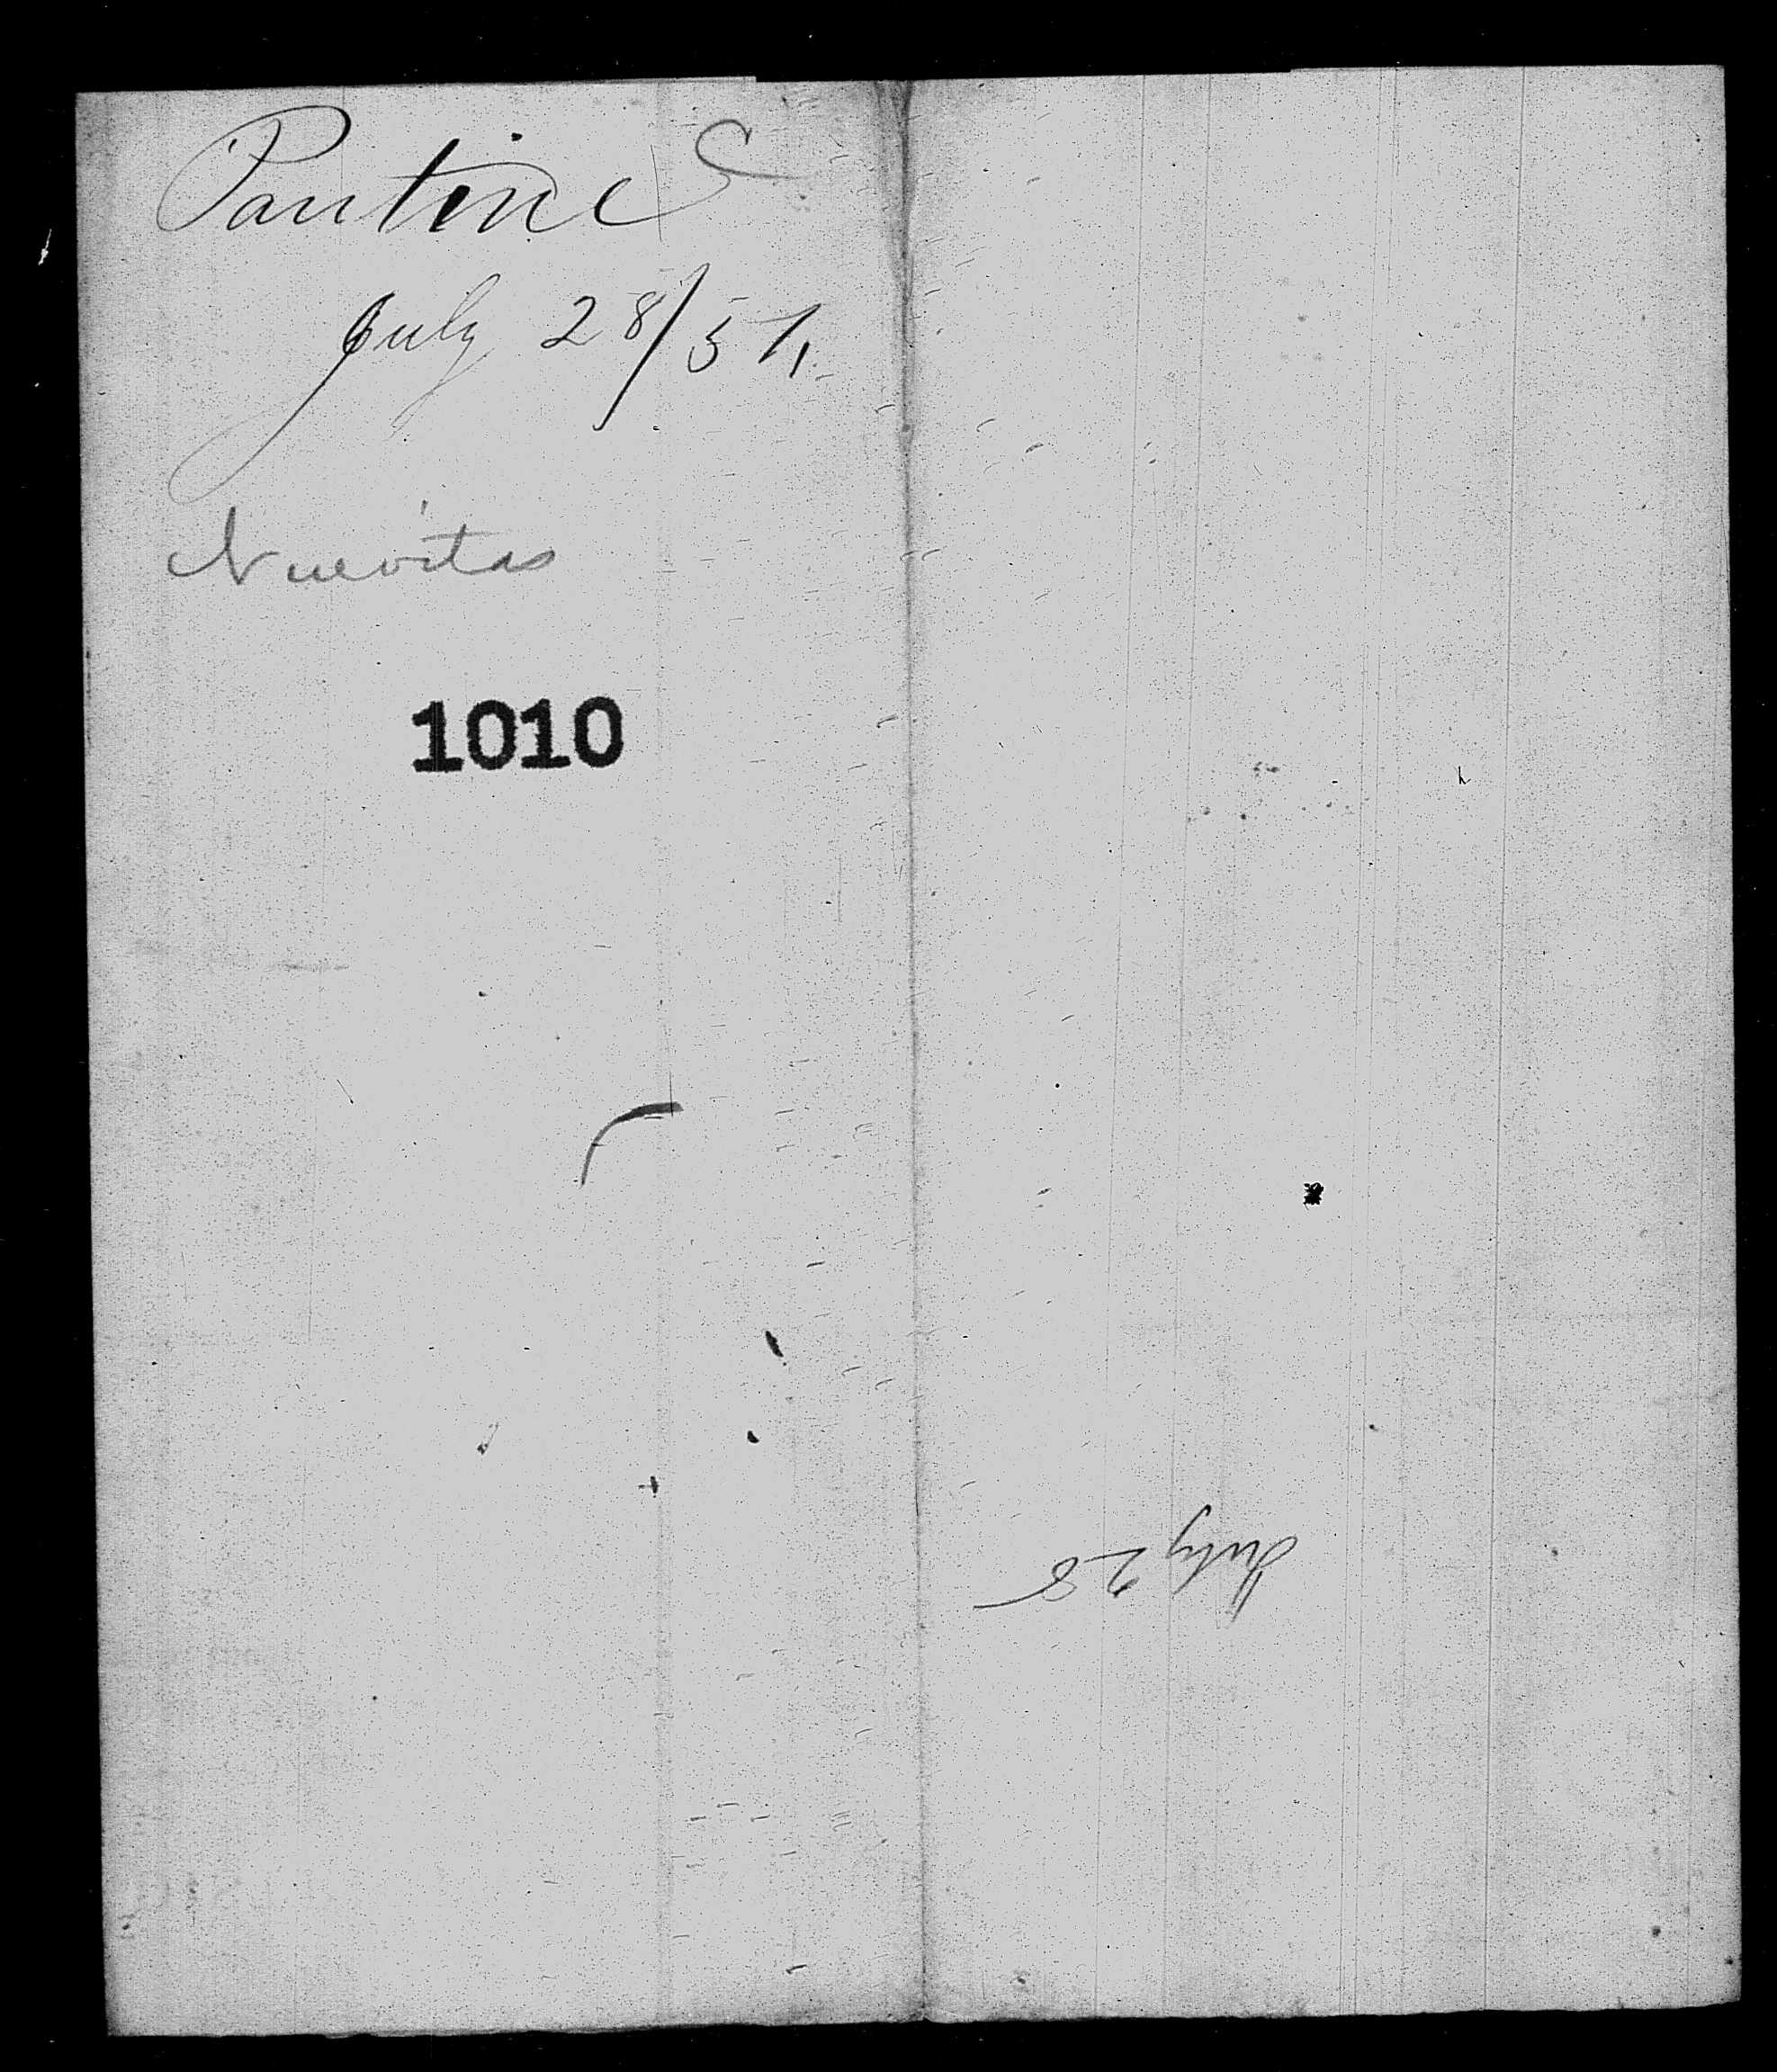 Pantine
July 28/51.
Nuevitas
1010
July 28